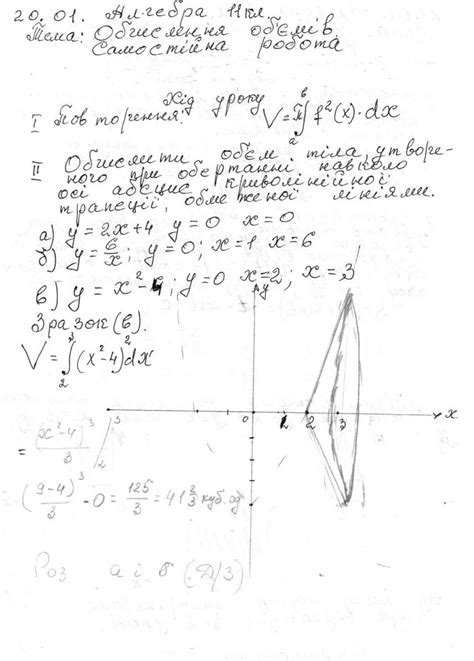 20.01. Алгебра. 11 кл.
Тема: Обчислення об'ємів.
Самостійна робота
Хід уроку
I Повторення. V = π∫ₐᵇ f²(x)·dx
II Обчислити об'єм тіла, утворе-
ного при обертанні навколо
осі абсцис криволінійної
трапеції, обмеженої лініями.
а) y = 2x+4 y = 0 x = 0
б) y = 6/x; y = 0; x = 1 x = 6
в) y = x²-4; y = 0 x = 2; x = 3
Зразок (в).
y
V = ∫₂³ (x²-4)² dx
3 0 1 2 3 x
= (x²-4)³/3 /₂³
(9-4)³/3 - 0 = 125/3 = 41 2/3 куб.од
Роз а і б (Д/З)